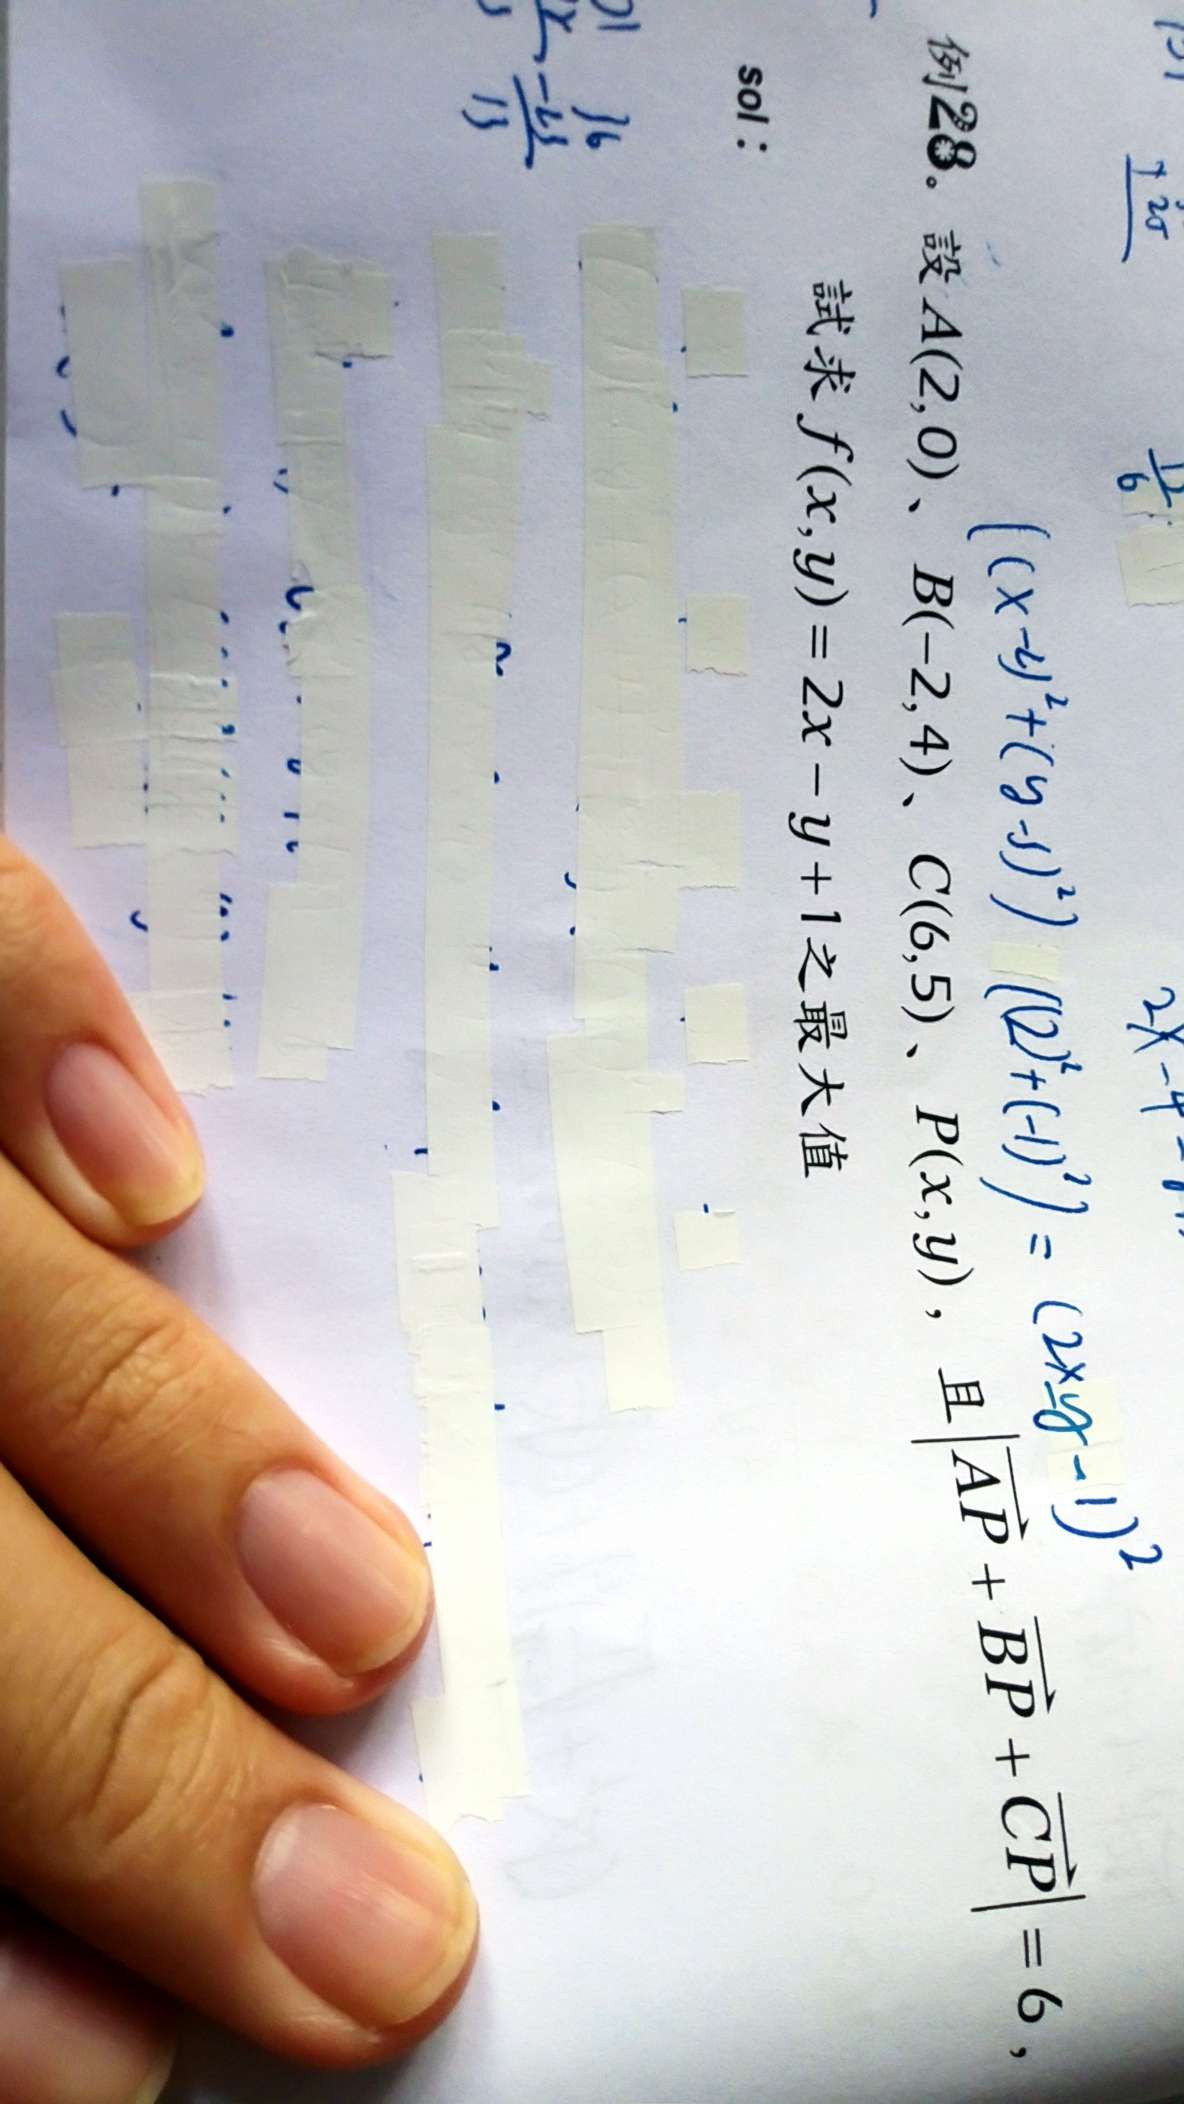 2x-4-y
+25
12
6
[(x-y)²+(y-5)²] [(2)²+(-1)²] = (2x-y-1)²
例28。設A(2,0)、B(-2,4)、C(6,5)、P(x,y)，且|AP+BP+CP|=6，
試求f(x,y)=2x-y+1之最大值
sol：
16
13